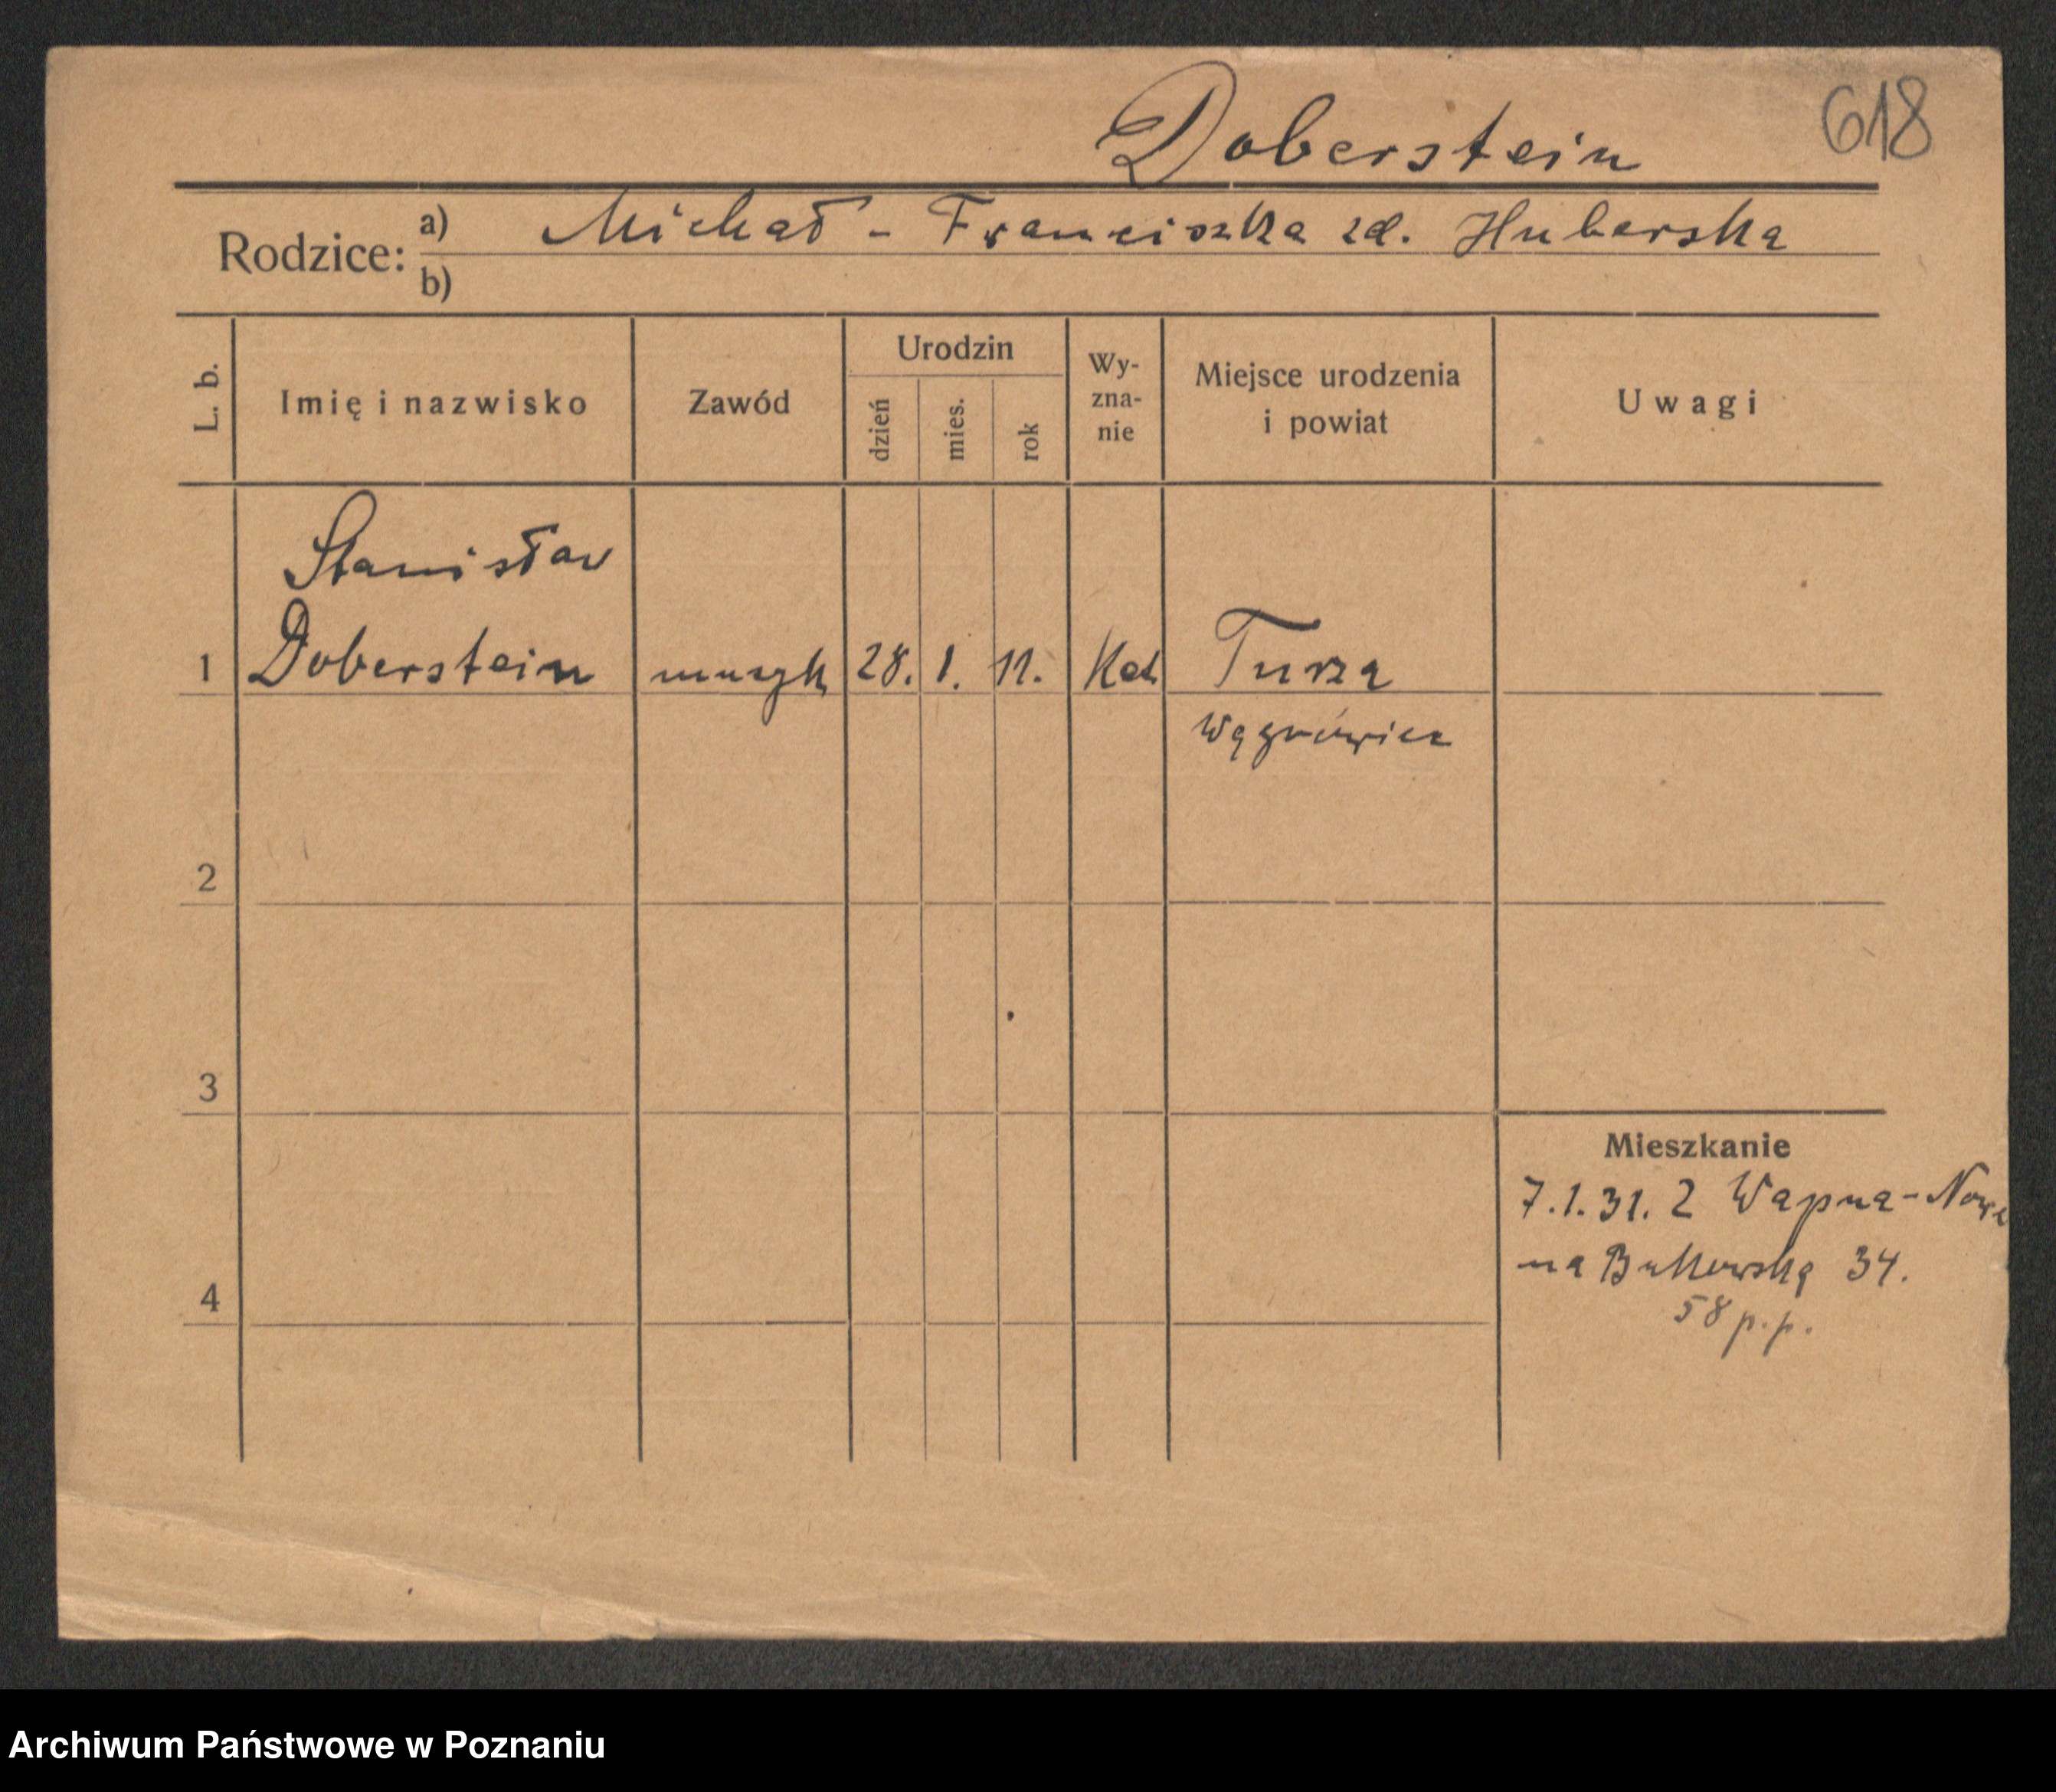 618
Doberstein
Rodzice: a) Michał - Franciszka zd. Huberska
b)
L. b.
Imię i nazwisko
Zawód
Urodzin
dzień
mies.
rok
Wy-
zna-
nie
Miejsce urodzenia
i powiat
Uwagi
Stanisław
1 Doberstein muzyk 28. 1. 11. Kat Turza
Wągrówiec
2
3
4
Mieszkanie
7.1.31. z Wapna-Nowe
na Bukowską 34.
58 p.p.
Archiwum Państwowe w Poznaniu